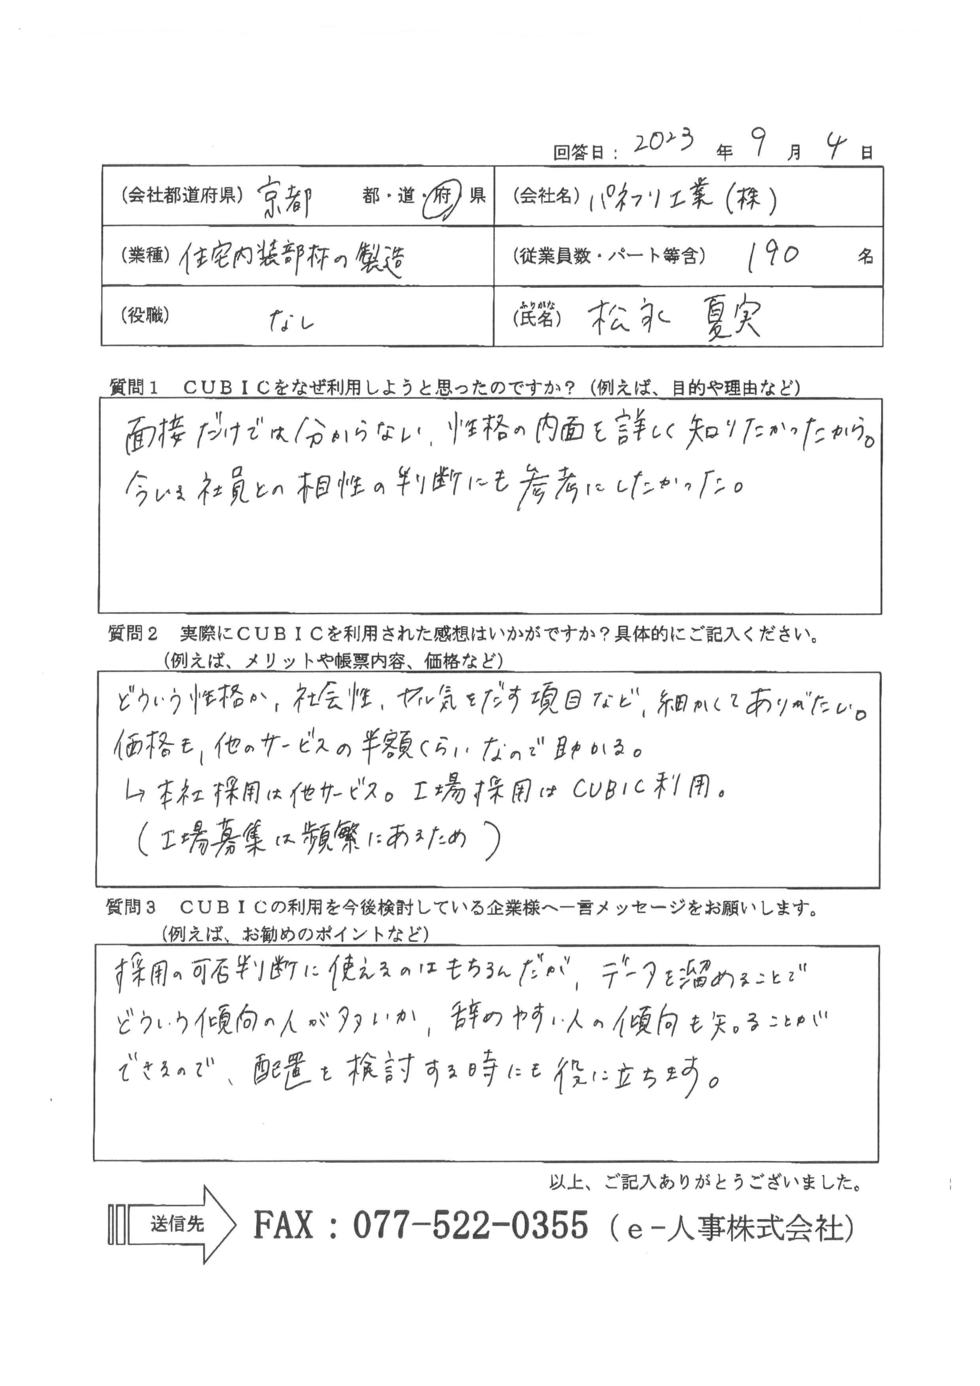 回答日： 2023 年 9 月 4 日
（会社都道府県） 京都 都・道・府 県
（会社名） パネフリ工業（株）
（業種） 住宅内装部材の製造
（従業員数・パート等含） 190 名
（役職） なし
ふりがな
（氏名） 松永 夏実
質問１ ＣＵＢＩＣをなぜ利用しようと思ったのですか？（例えば、目的や理由など）
面接だけでは分からない、性格の内面を詳しく知りたかったから。
今いる社員との相性の判断にも参考にしたかった。
質問２ 実際にＣＵＢＩＣを利用された感想はいかがですか？具体的にご記入ください。
（例えば、メリットや帳票内容、価格など）
どういう性格か、社会性、ヤル気をだす項目など、細かくてありがたい。
価格も、他のサービスの半額くらいなので助かる。
↳ 本社採用は他サービス。工場採用はCUBIC利用。
（工場募集は頻繁にあるため）
質問３ ＣＵＢＩＣの利用を今後検討している企業様へ一言メッセージをお願いします。
（例えば、お勧めのポイントなど）
採用の可否判断に使えるのはもちろんだが、データを溜めることで
どういう傾向の人が多いか、辞めやすい人の傾向も知ることが
できるので、配置を検討する時にも役に立ちます。
以上、ご記入ありがとうございました。
送信先 FAX：077-522-0355（e-人事株式会社）